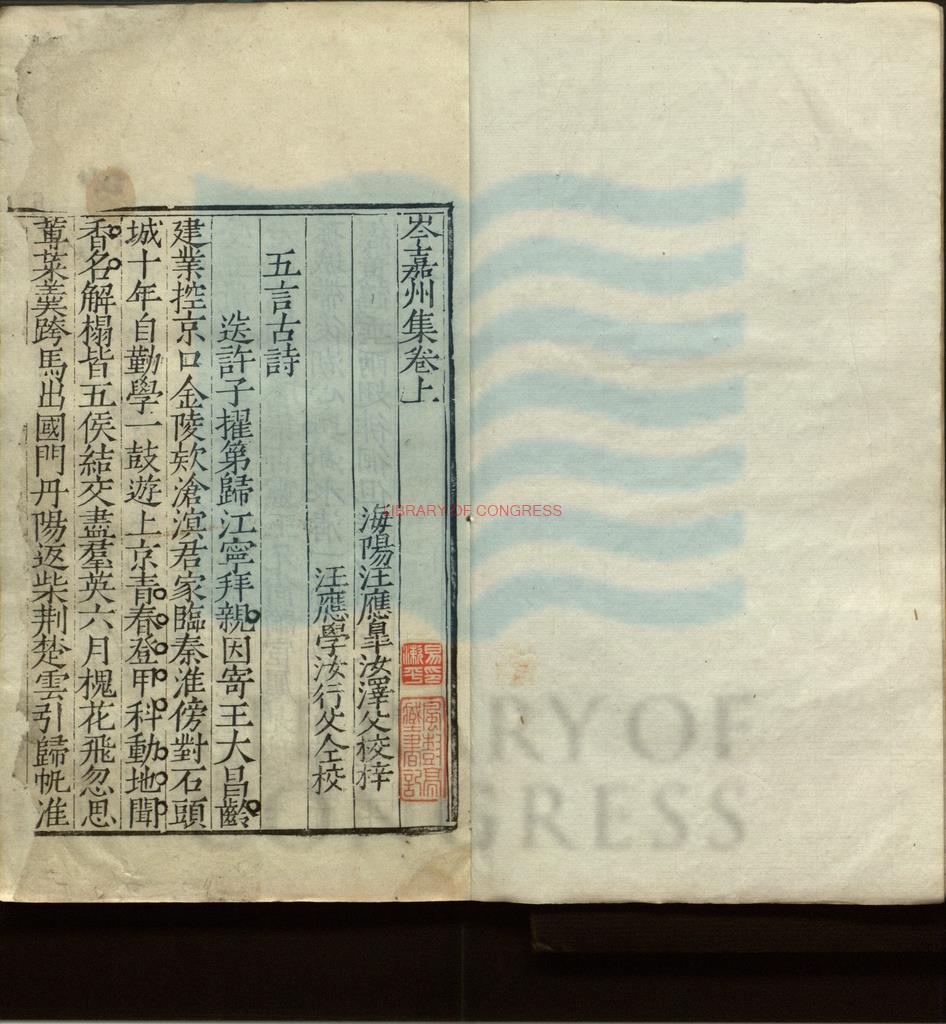 岑嘉州集卷上
海陽汪應臯汝澤父校梓
汪應學汝行父仝校
五言古詩
送許子擢第歸江寧拜親因寄王大昌齡
建業控京口金陵欵滄溟君家臨秦淮傍對石頭
城十年自勤學一鼓遊上京青春登甲科動地聞
香名解榻皆五侯結交盡羣英六月槐花飛忽思
蓴菜羹跨馬出國門丹陽返柴荆楚雲引歸帆淮
風樹亭
藏書記
LIBRARY OF CONGRESS
LIBRARY OF CONGRESS